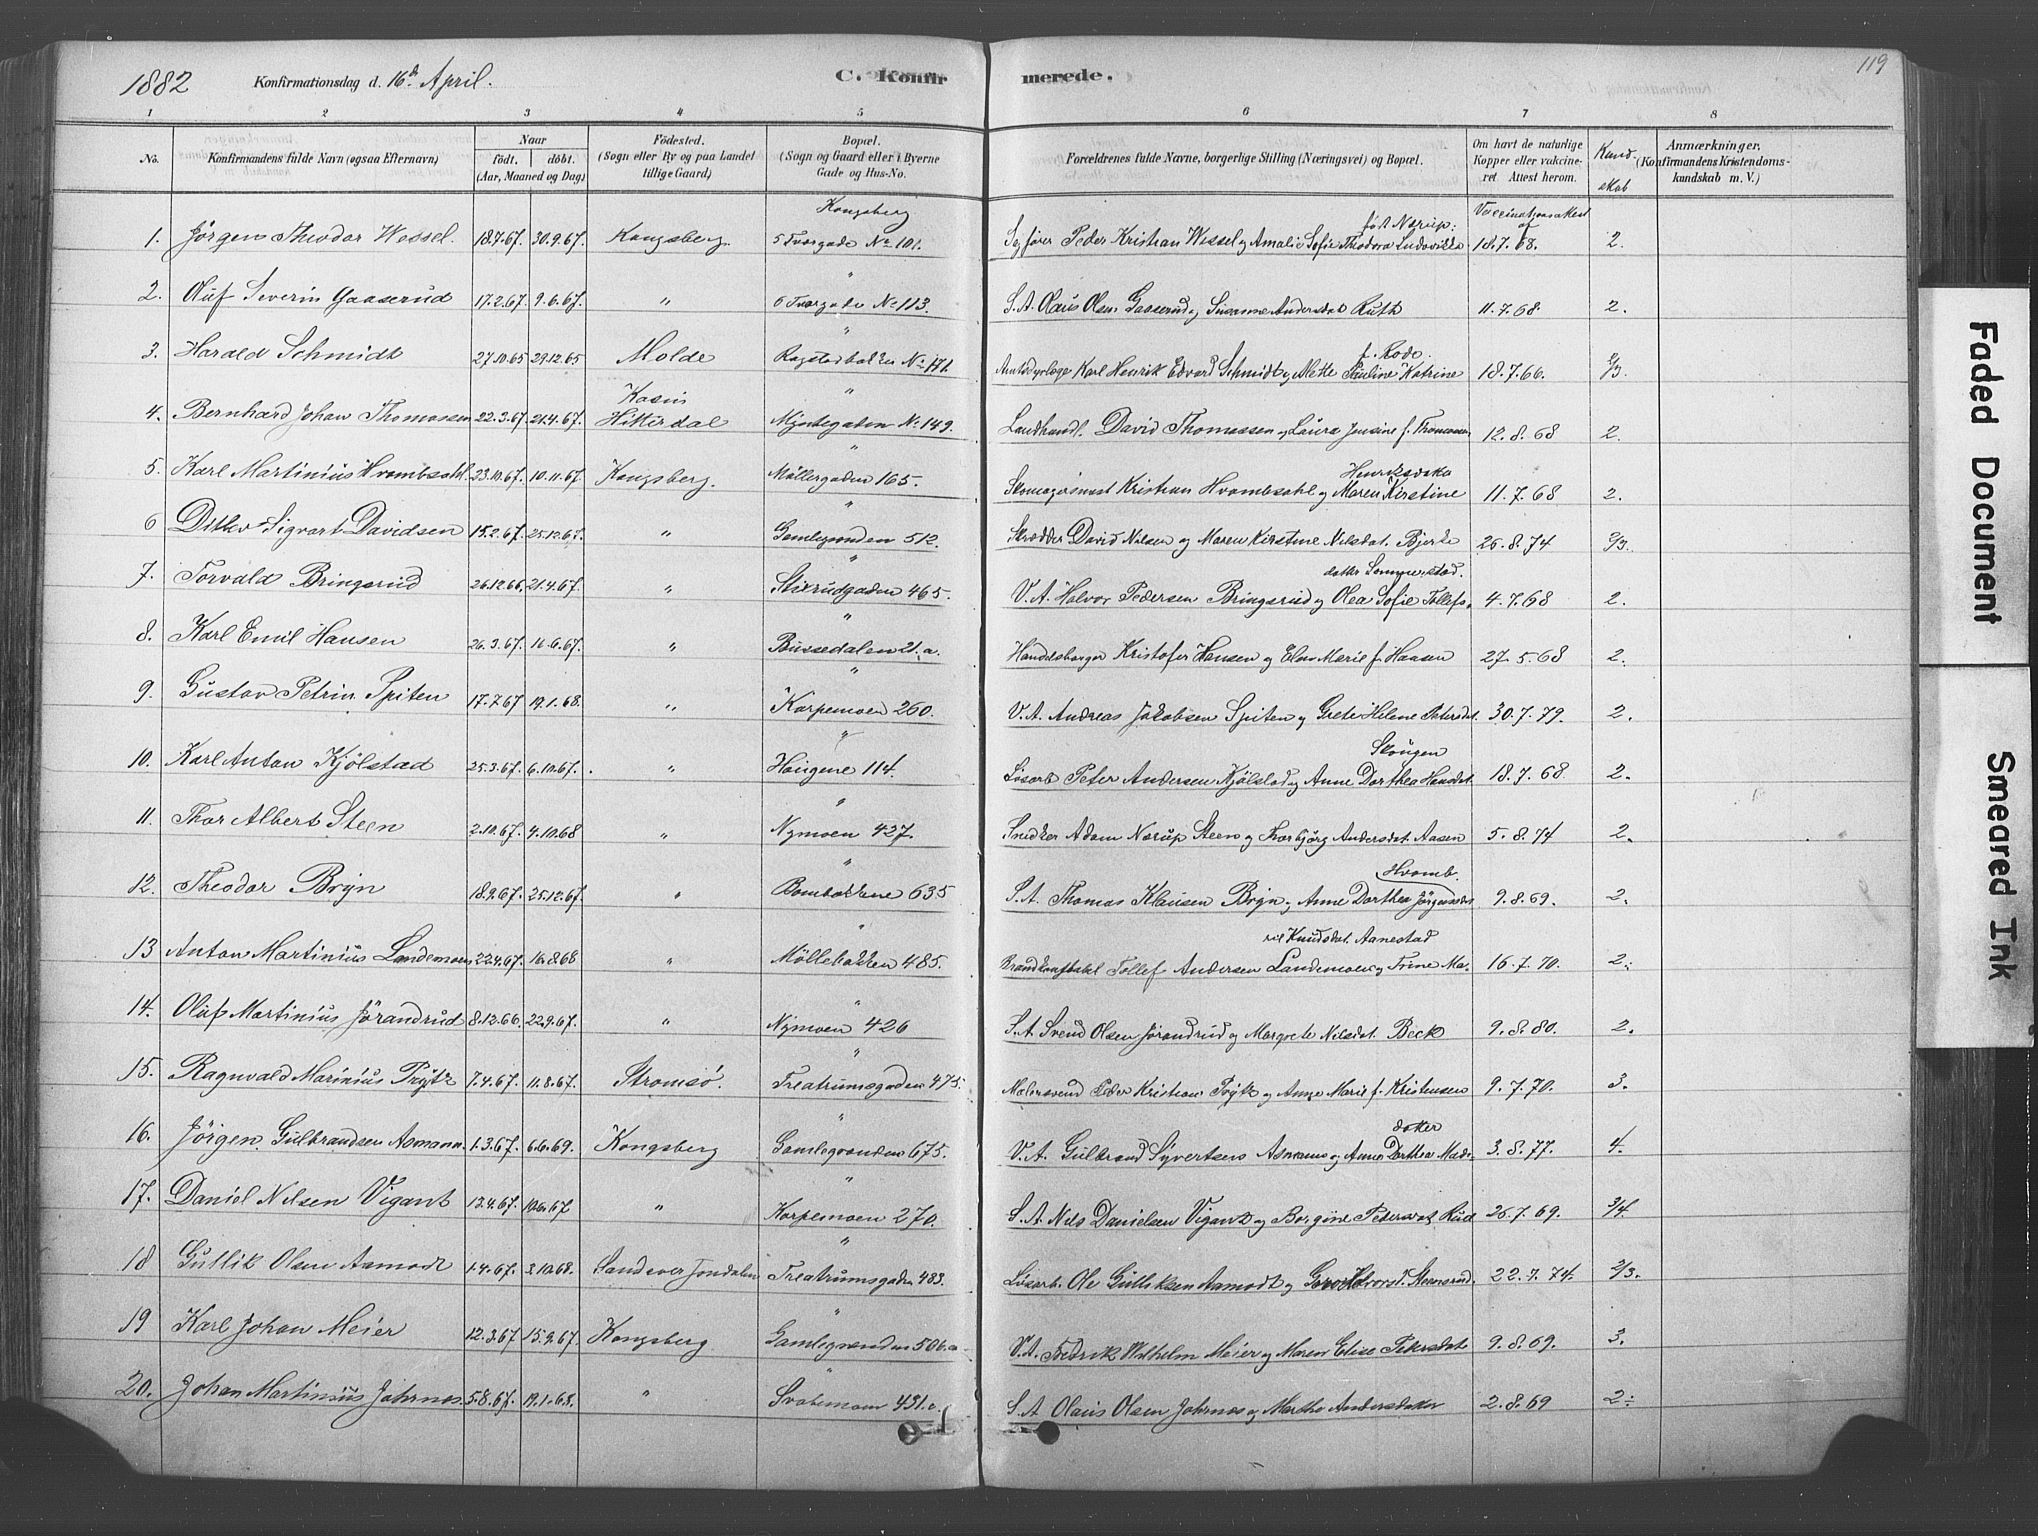 1882 Konfirmationsdag d. 16de April. C. Konfirmerede. 119
1 2 3 4 5 6 7 8
No. Konfirmandens fulde Navn (ogsaa Efternavn) Naar født. døbt. (Aar, Maaned og Dag) Fødested. (Sogn eller By og paa Landet tillige Gaard) Bopæl. (Sogn og Gaard eller i Byerne Gade og Hus-No. Forældrenes fulde Navne, borgerlige Stilling (Næringsvei) og Bopæl. Om havt de naturlige Kopper eller vaccineret Attest herom. Kundskab Anmærkninger. (Konfirmandens Kristendomskundskab m. V.)
Kongsberg født Nærup. Vaccinationsattest af
1. Jörgen Theodor Wessel. 18.7.67. 30.9.67. Kongsberg. 5 Tvergade No 101. Peder Kristian Wessel og Amalie Sofie Theodora Ludovikke 18.7.68. 2.
2. Oluf Severin Gaaserud 17.2.67. 9.6.67. " 6 Tvergade No 113. S.A. Olaus Olsen Gaaserud og Susanne Andersdat Ruth 11.7.68. 2.
f. Rode.
3. Harald Schmidt 27.10.65 29.12.65 Molde No 171. Karl Henrik Edvard Schmidt og Mette Pauline Katrine 18.7.66. 2/3.
4. Bernhard Johan Thomassen 22.3.67. 21.4.67. Hitterdal Myntegaden No 149. Landhandl. David Thomassen og Laura Jensine f. Thomassen 12.8.68 2.
5. Karl Martinius Hvambsahl. 23.10.67. 10.11.67. Kongsberg. Møllergaden 165. Kristian Hvambsahl og Maren Kirstine 11.7.68 2.
6 Ditlev Sigvart Davidsen 15.2.67. 25.12.67. " Gamlegrunden 512. Skrædder David Nilsen og Maren Kirstine Nilsdat. Bjerke 26.8.74 2/3.
7. Torvald Bringsrud 26.12.66. 21.4.67. " Stixrudgaden 465. V.A. Halvor Pedersen Bringsrud og Olea Sofie Tollefs- 4.7.68 2.
8. Karl Emil Hansen 26.3.67. 16.6.67. " Bussedalen 21.a. Handelsborger Kristofer Hansen og Elen Marie f. Haasen 27.5.68 2.
9. Gustav Petrin Spiten 17.7.67 19.1.68. " Karpemoen 260. V.A. Andreas Jakobsen Spiten og Grete Helene Petersdat. 30.7.79. 2.
Skougen
10. Karl Anton Kjölstad 25.3.67. 6.10.67. " Hougene 114. Løsarb. Peter Andersen Kjölstad og Anne Dorthea Hansdat. 18.7.68. 2.
11. Thor Albert Steen 2.10.67. 4.10.68 " Nymoen 427. Snedker Adam Nærup Steen og Thorbjörg Andersdat. Aasen 5.8.74 2.
Hvamb.
12. Theodor Bryn 18.9.67. 25.12.67. " Bombakkene 635 S.A. Thomas Klausen Bryn og Anne Dorthea Jørgensdat 9.8.69. 2.
rie Knudsdat. Aanestad
13 Anton Martinius Landemoen 22.4.67. 16.8.68 " Möllebakken 485. Tollef Andersen Landemoen og Trine Ma- 16.7.70. 2.
14. Oluf Martinius Jörandrud 8.12.66. 22.9.67. " Nymoen 426 S.A. Svend Olsen Jörandrud og Margrete Nilsdat. Beck 9.8.80. 2.
15. Ragnvald Marinius Prytz 7.4.67. 11.8.67. Stromsö. Treatrumsgaden 475. Malersvend Peder Kristian Prytz og Anne Marie f. Kristensen 9.7.70. 3.
16. Jörgen Gulbrandsen Asmann. 1.3.67. 6.6.69. Kongsberg Gamlegrunden 675. V.A. Gulbrand Syvertsen Asmann og Anne Dorthea 3.8.77. 4.
17. Daniel Nilsen Vigant 13.4.67. " Karpemoen 270. S.A. Nils Danielsen Vigant og Borgine Pedersdat. Rud 26.7.69. 3/4.
18 Gullik Olsen Aamodt 1.4.67. 3.10.68. Sandsver Jondalen Treatrumsgaden 483. Løsarb. Ole Gulliksen Aamodt og 22.7.74. 2/3.
19 Karl Johan Meier 12.3.67 15.9.67. Kongsberg Gamlegrunden 506.a V.A. Fredrik Wilhelm Meier og Maren Elise Petersdat 9.8.69. 3.
20. Johan Martinius Jahrnæs 5.8.67. 19.1.68. " Svabemoen 431.c. S.A. Olaus Olsen Jahrnæs og Marthe Andersdatter 2.8.69 2.
Faded Document
Smeared Ink